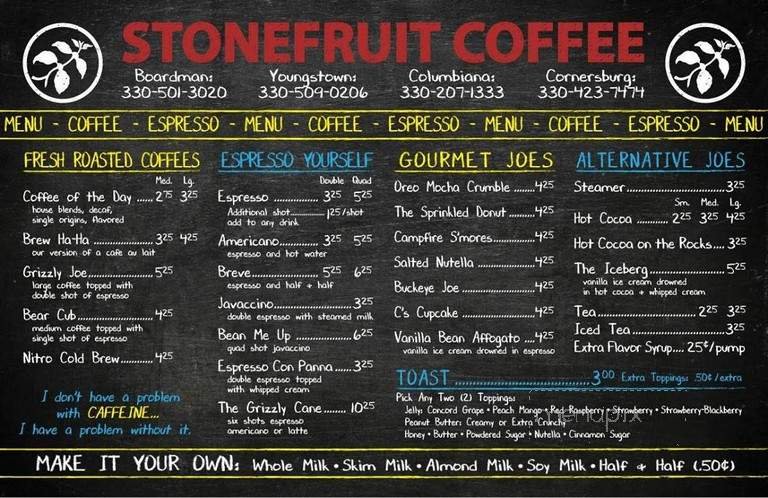 STONEFRUIT COFFEE
Boardman: Youngstown: Columbiana: Cornersburg:
330-501-3020 330-509-0206 330-207-1333 330-423-7474
MENU - COFFEE - ESPRESSO - MENU - COFFEE - ESPRESSO - MENU - COFFEE - ESPRESSO - MENU
FRESH ROASTED COFFEES
Med. Lg.
Coffee of the Day ..... 2 75 3 25
house blends, decaf,
single origins, flavored
Brew Ha-Ha ................ 3 25 4 25
our version of a cafe au lait
Grizzly Joe ................ 5 25
large coffee topped with
double shot of espresso
Bear Cub .................... 4 25
medium coffee topped with
single shot of espresso
Nitro Cold Brew .......... 4 25
I don't have a problem
with CAFFEINE...
I have a problem without it.
ESPRESSO YOURSELF
Double Quad
Espresso ................ 3 25 5 25
Additional shot ............ 1 25/shot
add to any drink
Americano ............... 3 25 5 25
espresso and hot water
Breve ..................... 5 25 6 25
espresso and half & half
Javaccino ....................... 3 25
double espresso with steamed milk
Bean Me Up .................. 6 25
quad shot javaccino
Espresso Con Panna ...... 3 25
double espresso topped
with whipped cream
The Grizzly Cane ........ 10 25
six shots espresso
americano or latte
GOURMET JOES
Oreo Mocha Crumble ....... 4 25
The Sprinkled Donut ........ 4 25
Campfire S'mores ............. 4 25
Salted Nutella .................. 4 25
Buckeye Joe .................... 4 25
C's Cupcake .................... 4 25
Vanilla Bean Affogato .... 4 25
vanilla ice cream drowned in espresso
ALTERNATIVE JOES
Steamer ................................ 3 25
Sm. Med. Lg.
Hot Cocoa ......... 2 25 3 25 4 25
Hot Cocoa on the Rocks .... 3 25
The Iceberg ...................... 5 25
vanilla ice cream drowned
in hot cocoa + whipped cream
Tea ............................. 2 25 3 25
Iced Tea ............................ 3 25
Extra Flavor Syrup .... 25¢/pump
TOAST ........................................ 3 00 Extra Toppings: .50¢/extra
Pick Any Two (2) Toppings:
Jelly: Concord Grape • Peach Mango • Red Raspberry • Strawberry • Strawberry-Blackberry
Peanut Butter: Creamy or Extra Crunchy
Honey • Butter • Powdered Sugar • Nutella • Cinnamon Sugar
menupix
MAKE IT YOUR OWN: Whole Milk • Skim Milk • Almond Milk • Soy Milk • Half & Half (.50¢)